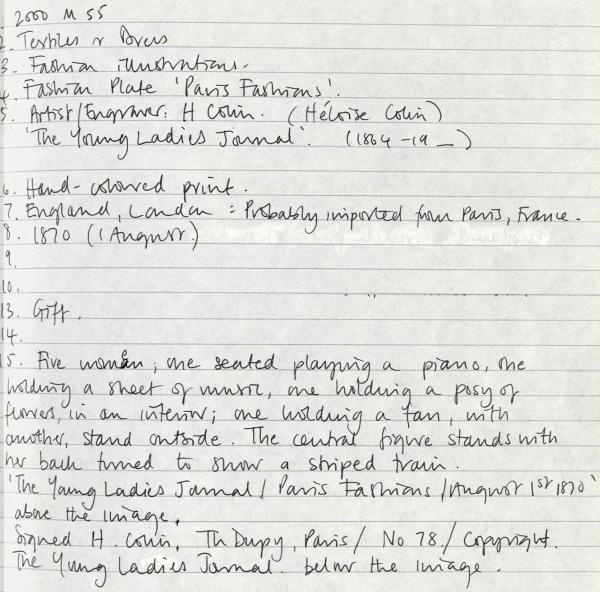 . 2000 M 55
2. Textiles & Dress
3. Fashion illustrations.
4. Fashion Plate 'Paris Fashions'.
5. Artist/Engraver: H Colin. (Héloïse Colin)
'The Young Ladies Journal'. (1864 - 19_)
6. Hand-coloured print.
7. England, London = Probably imported from Paris, France.
8. 1870 (1 August.)
9.
10.
13. Gift.
14.
15. Five women; one seated playing a piano, one
holding a sheet of music, one holding a posy of
flowers, in an interior; one holding a fan, with
another, stand outside. The central figure stands with
her back turned to show a striped train.
'The Young Ladies Journal / Paris Fashions / August 1st 1870'
above the image.
Signed H. Colin, Th Dupy, Paris / No 78. / Copyright.
The Young Ladies Journal. below the image.